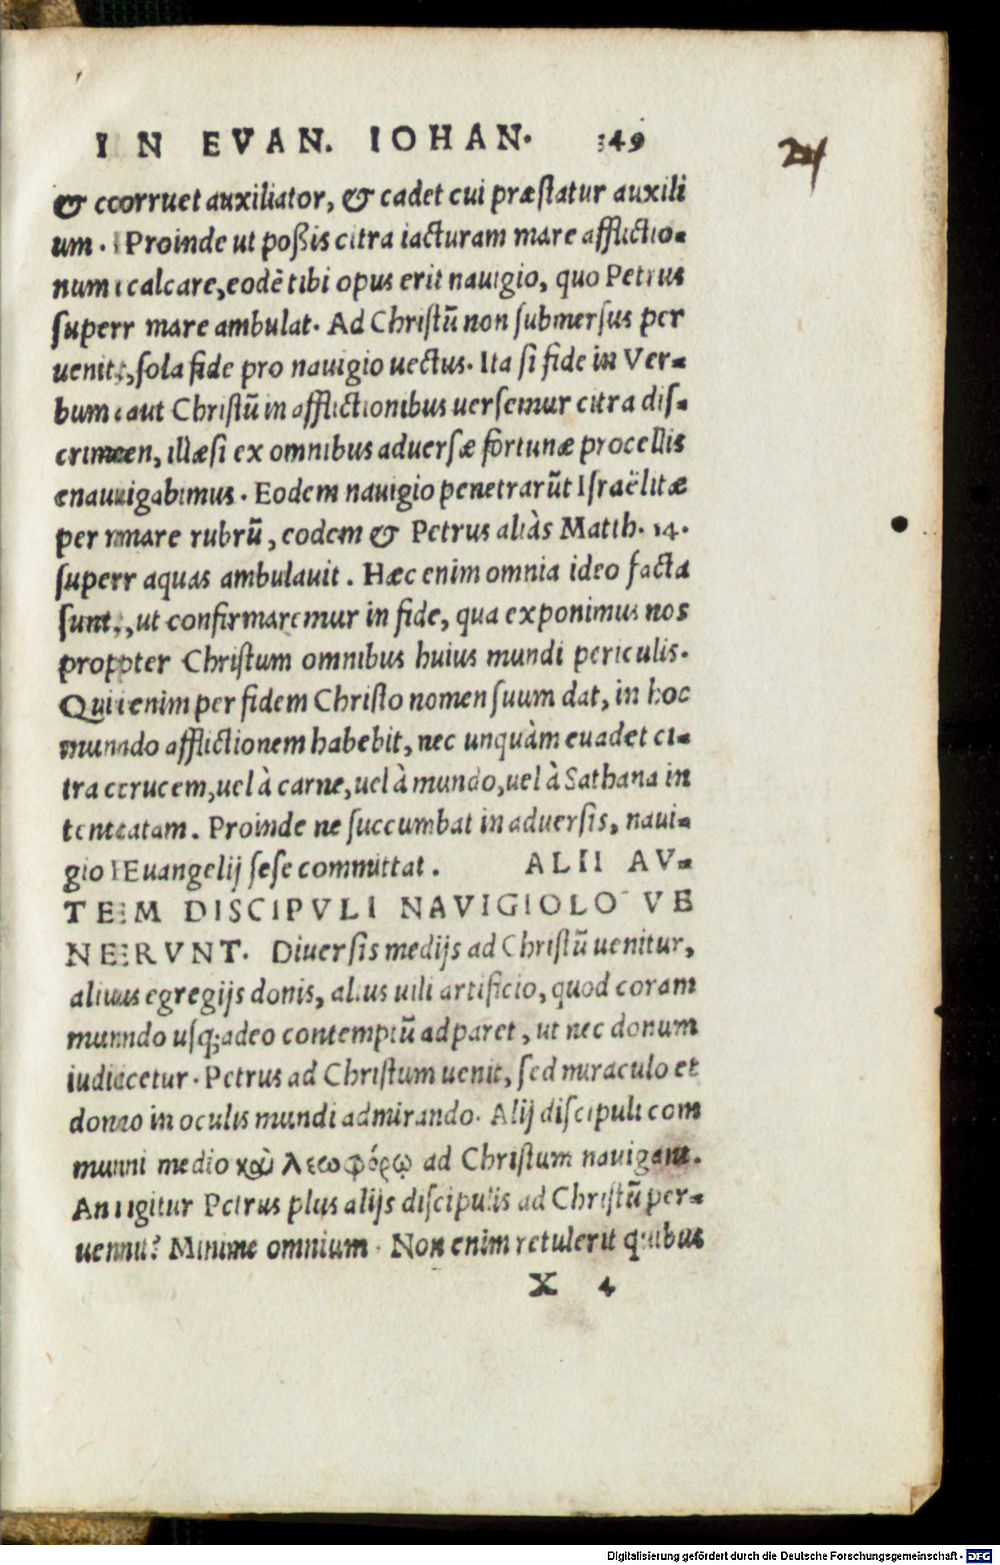 IN EVAN. IOHAN. 349
24
& corruet auxiliator, & cadet cui præstatur auxili
um. Proinde ut poßis citra iacturam mare afflictio-
num calcare, eodē tibi opus erit nauigio, quo Petrus
super mare ambulat. Ad Christū non submersus per
uenit, sola fide pro nauigio uectus. Ita si fide in Ver-
bum aut Christū in afflictionibus uersemur citra dis-
crimen, illæsi ex omnibus aduersæ fortunæ procellis
enauigabimus. Eodem nauigio penetrarūt Israëlitæ
per mare rubrū, eodem & Petrus aliàs Matth. 14.
super aquas ambulauit. Hæc enim omnia ideo facta
sunt, ut confirmaremur in fide, qua exponimus nos
propter Christum omnibus huius mundi periculis.
Qui enim per fidem Christo nomen suum dat, in hoc
mundo afflictionem habebit, nec unquàm euadet ci-
tra crucem, uel à carne, uel à mundo, uel à Sathana in
tentatam. Proinde ne succumbat in aduersis, naui-
gio Euangelij sese committat. ALII AV-
TEM DISCIPVLI NAVIGIOLO VE
NERVNT. Diuersis medijs ad Christū uenitur,
alius egregijs donis, alius uili artificio, quod coram
mundo usq; adeo contemptū adparet, ut nec donum
iudicetur. Petrus ad Christum uenit, sed miraculo et
dono in oculis mundi admirando. Alij discipuli com
muni medio καὶ λεωφόρῳ ad Christum nauigant.
An igitur Petrus plus alijs discipulis ad Christū per-
uenit? Minime omnium. Non enim retulerit quibus
X 4
Digitalisierung gefördert durch die Deutsche Forschungsgemeinschaft - DFG